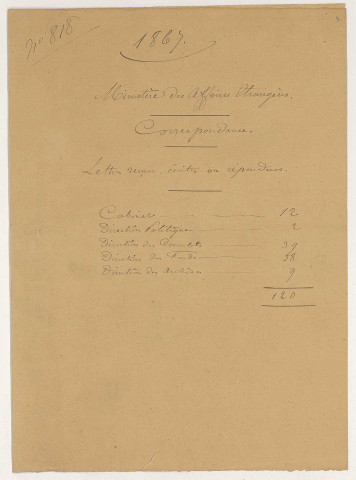 no 818
1867.
Ministère des Affaires étrangères.
Correspondance.
Lettres reçues, écrites ou répondues.
Cabinet 12
Direction Politique 2
Direction des Consulats 39
Direction des Fonds 58
Direction des Archives 9
120